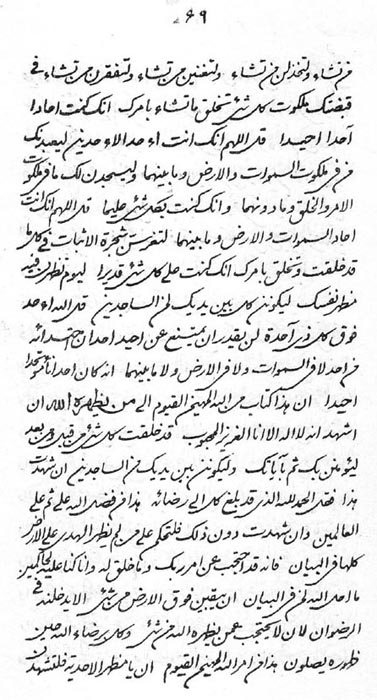 ٤٩
من تشاء ولتخذلن من تشاء ولتغنين من تشاء ولتفقرن من تشاء في
قبضتك ملكوت كل شئ تخلق ما تشاء بامرك انك كنت احادا
آحدا احيدا قل اللهم انك انت اءحد الاءحدين ليعبدنك
من في ملكوت السموات والارض وما بينهما وليسجدن لك ما في ملكوت
الامر والخلق وما دونهما وانك كنت بكل شئ عليما قل اللهم انك انت
احاد السموات والارض وما بينهما لتغرسن شجرة الاثبات في كل ما
قد خلقت وتخلق بامرك انك كنت على كل شئ قديرا ليوم تظهرن فيه
مظهر نفسك ليكونن كل بين يديك لمن الساجدين قل الله اءحد
فوق كل ذي آحدة لن يقدر ان يمتنع عن احيد احداحته من
من احد لا في السموات ولا في الارض ولا ما بينهما انه كان احدانا
احيدا ان هذا كتاب من الله المهيمن القيوم الى من يظهره الله ان
اشهد انه لا اله الا انا العزيز المحبوب قد خلقت كل شئ من قبل ومن بعد
ليؤمنن بك ثم بآياتك وليكونن بين يديك لمن الساجدين ان شهدت
هذا فقل الحمد لله الذي قد بلغ كل الى رضائه هذا من فضل الله علي ثم على
العالمين وان شهدت دون ذلك فلتحكم على من لم يظهر الهدى على الارض
كلها من البيان فانه قد احتجب عن امر ربك وما خلق له وانا كنا عليه
ما احد الله لمن في البيان ان يبقين فوق الارض من شئ الا يدخلنه في
الرضوان لان لا يحتجب عمن يظهره الله من شئ وكل برضاء الله حين
ظهوره يصلون هذا من امر الله المهيمن القيوم ان يا مظهر الاحدية فلتشهدن